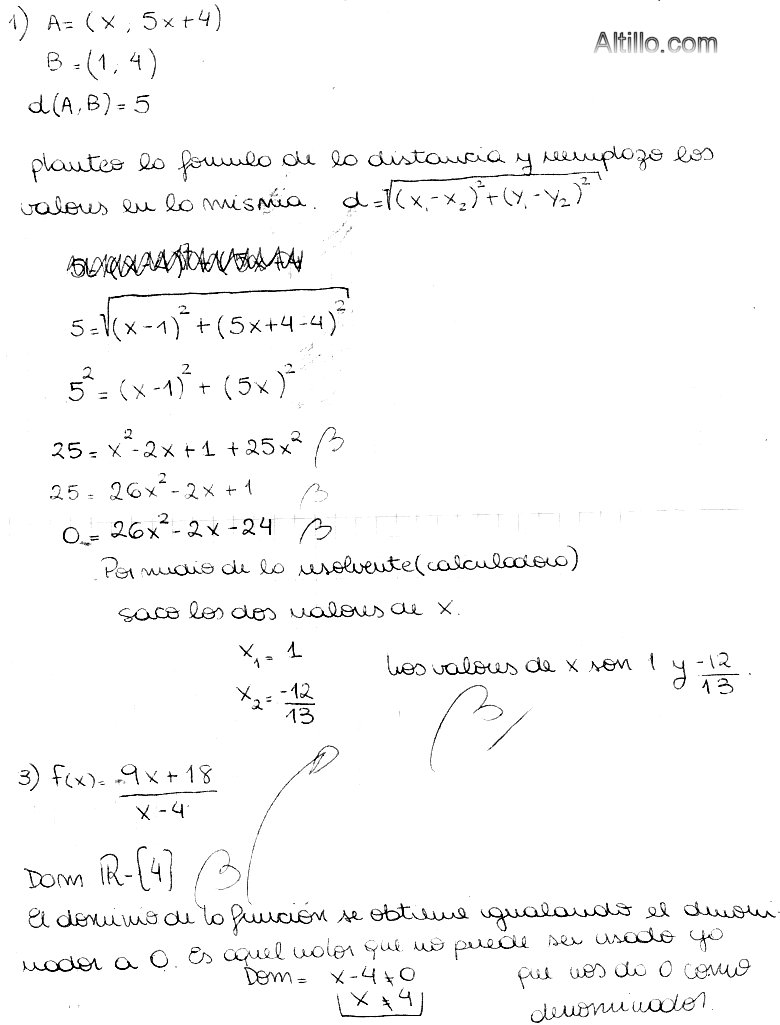 1) A = (x, 5x+4)
Altillo.com
B = (1, 4)
d(A, B) = 5
planteo la formula de la distancia y remplazo los
valores en la misma. d = √((x₁ - x₂)² + (y₁ - y₂)²)
5 = √((x-1)² + (5x+4-4)²)
5² = (x-1)² + (5x)²
25 = x² - 2x + 1 + 25x² B
25 = 26x² - 2x + 1 B
0 = 26x² - 2x - 24 B
Por medio de la resolvente (calculadora)
saco los dos valores de x.
x₁ = 1
x₂ = -12/13
Los valores de x son 1 y -12/13.
B
3) f(x) = -9x + 18 / x - 4
Dom ℝ - {4} B
El dominio de la función se obtiene igualando el denomi-
nador a 0. Es aquel valor que no puede ser usado ya
Dom = x - 4 ≠ 0 que nos da 0 como
x ≠ 4 denominador.